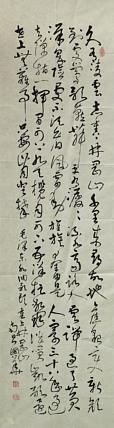 久有凌云志重上井冈山千里来寻故地旧貌变新颜
到处莺歌燕舞更有潺潺流水高路入云端过了黄
洋界险处不须看风雷动旌旗奋是人寰三十八年
过去弹指一挥间可上九天揽月可下五洋捉鳖谈笑凯歌还
世上无难事只要肯登攀 毛泽东水调歌头重上井冈山